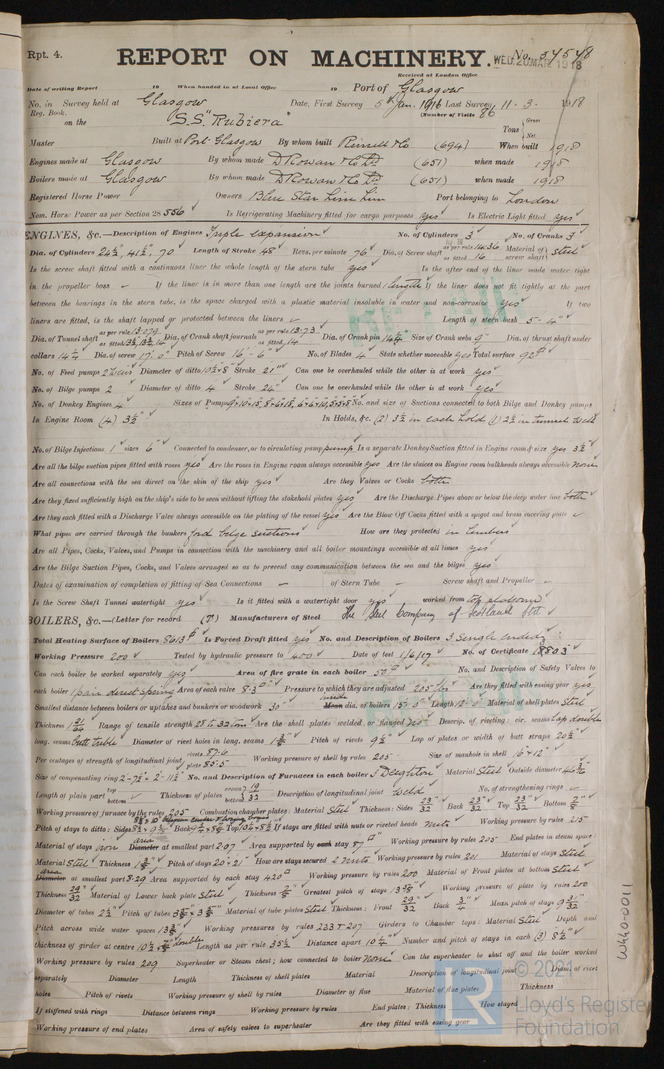 Rpt. 4.
REPORT ON MACHINERY.
No. 37578
WED. 20 MAR. 1918
Received at London Office
Date of writing Report 19 When handed in at Local Office 19 Port of Glasgow
No. in Survey held at Glasgow Date, First Survey 5th Jan. 1916 Last Survey 11-3-1918
Reg. Book. (Number of Visits 86
on the S.S. "Rubiera" Tons { Gross Net
Master Built at Port-Glasgow By whom built (694) When built 1918
Engines made at Glasgow By whom made D Rowan & Co Ld (651) when made 1918
Boilers made at Glasgow By whom made D Rowan & Co Ld (651) when made 1918
Registered Horse Power Owners Blue Star Line Lim Port belonging to London
Nom. Horse Power as per Section 28 556 Is Refrigerating Machinery fitted for cargo purposes yes Is Electric Light fitted yes
ENGINES, &c.—Description of Engines Triple expansion No. of Cylinders 3 No. of Cranks 3
Dia. of Cylinders 24½", 41½", 70 Length of Stroke 48" Revs. per minute 76 Dia. of Screw shaft as per rule 14.36 as fitted 16 Material of screw shaft Steel
Is the screw shaft fitted with a continuous liner the whole length of the stern tube yes Is the after end of the liner made water tight
in the propeller boss – If the liner is in more than one length are the joints burned 1 length If the liner does not fit tightly at the part
between the bearings in the stern tube, is the space charged with a plastic material insoluble in water and non-corrosive yes If two
liners are fitted, is the shaft lapped or protected between the liners – Length of stern bush 5-4"
Dia. of Tunnel shaft as per rule 13.079 Dia. of Crank shaft journals as per rule 13.73 as fitted 14 Dia. of Crank pin 14¼ Size of Crank webs 9" Dia. of thrust shaft under
collars 14¼ Dia. of screw 17'.0" Pitch of Screw 16'-6" No. of Blades 4 State whether moveable yes Total surface 92
No. of Feed pumps Diameter of ditto 10½ x 8 Stroke 21" Can one be overhauled while the other is at work yes
No. of Bilge pumps 2 Diameter of ditto 4 Stroke 24" Can one be overhauled while the other is at work yes
No. of Donkey Engines 4 Sizes of Pumps No. and size of Suctions connected to both Bilge and Donkey pumps
In Engine Room (4) 3½" In Holds, &c. (2) 3½ in each hold (1) 2½ in tunnel well
No. of Bilge Injections 1 sizes 6" Connected to condenser, or to circulating pump pump Is a separate Donkey Suction fitted in Engine room & size yes 3½
Are all the bilge suction pipes fitted with roses yes Are the roses in Engine room always accessible yes Are the sluices on Engine room bulkheads always accessible none
Are all connections with the sea direct on the skin of the ship yes Are they Valves or Cocks both
Are they fixed sufficiently high on the ship's side to be seen without lifting the stokehold plates yes Are the Discharge Pipes above or below the deep water line both
Are they each fitted with a Discharge Valve always accessible on the plating of the vessel yes Are the Blow Off Cocks fitted with a spigot and brass covering plate –
What pipes are carried through the bunkers ford bilge suctions How are they protected in timbers
Are all Pipes, Cocks, Valves, and Pumps in connection with the machinery and all boiler mountings accessible at all times yes
Are the Bilge Suction Pipes, Cocks, and Valves arranged so as to prevent any communication between the sea and the bilges yes
Dates of examination of completion of fitting of Sea Connections – of Stern Tube – Screw shaft and Propeller –
Is the Screw Shaft Tunnel watertight yes Is it fitted with a watertight door yes worked from top platform
BOILERS, &c.—(Letter for record (T) Manufacturers of Steel The Steel Company of Scotland Ltd
Total Heating Surface of Boilers 8613 Is Forced Draft fitted yes No. and Description of Boilers 3 Single Ended
Working Pressure 200 Tested by hydraulic pressure to 400 Date of test 1/6/17 No. of Certificate 13803
Can each boiler be worked separately yes Area of fire grate in each boiler 50 No. and Description of Safety Valves to
each boiler 1 pair direct spring Area of each valve 8.3 Pressure to which they are adjusted 205 lbs Are they fitted with easing gear yes
Smallest distance between boilers or uptakes and bunkers or woodwork 30" inside Mean dia. of boilers 15'-5" Length 12'-0" Material of shell plates Steel
Thickness Range of tensile strength 28 to 32 tons Are the shell plates welded or flanged no Descrip. of riveting: cir. seams lap, double
long. seams butt treble Diameter of rivet holes in long. seams 1⅜ Pitch of rivets 9½" Lap of plates or width of butt straps 20½
Per centages of strength of longitudinal joint rivets 87.6 plate 85.5 Working pressure of shell by rules 205 Size of manhole in shell 16 x 12"
Size of compensating ring No. and Description of Furnaces in each boiler 3 Deighton Material Steel Outside diameter
Length of plain part top bottom Thickness of plates crown bottom 19/32 Description of longitudinal joint Weld No. of strengthening rings –
Working pressure of furnace by the rules 205 Combustion chamber plates: Material Steel Thickness: Sides 23/32 Back 23/32 Top 23/32 Bottom
Pitch of stays to ditto: Sides Back Top 10½ x 8½ If stays are fitted with nuts or riveted heads nuts Working pressure by rules 215
Material of stays iron area Diameter at smallest part 2.07 Area supported by each stay 87 Working pressure by rules 205 End plates in steam space:
Material Steel Thickness 1 Pitch of stays 20 x 21" How are stays secured 2 nuts Working pressure by rules 201 Material of stays Steel
area Diameter at smallest part 8.29 Area supported by each stay 420 Working pressure by rules 200 Material of Front plates at bottom Steel
Thickness 29/32 Material of Lower back plate Steel Thickness Greatest pitch of stays Working pressure of plate by rules 200
Diameter of tubes 2½ Pitch of tubes Material of tube plates Steel Thickness: Front 29/32 Back ¾ Mean pitch of stays
Pitch across wide water spaces 13¾ Working pressures by rules 233 & 207 Girders to Chamber tops: Material Steel Depth and
thickness of girder at centre double Length as per rule 35½ Distance apart 10¼ Number and pitch of stays in each (3) 8½
Working pressure by rules 209 Superheater or Steam chest; how connected to boiler None Can the superheater be shut off and the boiler worked
separately Diameter Length Thickness of shell plates Material Description of longitudinal joint Diam. of rivet
holes Pitch of rivets Working pressure of shell by rules Diameter of flue Material of flue plates Thickness
If stiffened with rings Distance between rings Working pressure by rules End plates: Thickness How stayed
Working pressure of end plates Area of safety valves to superheater Are they fitted with easing gear
W440-0011
© 2021
Lloyd's Register
Foundation